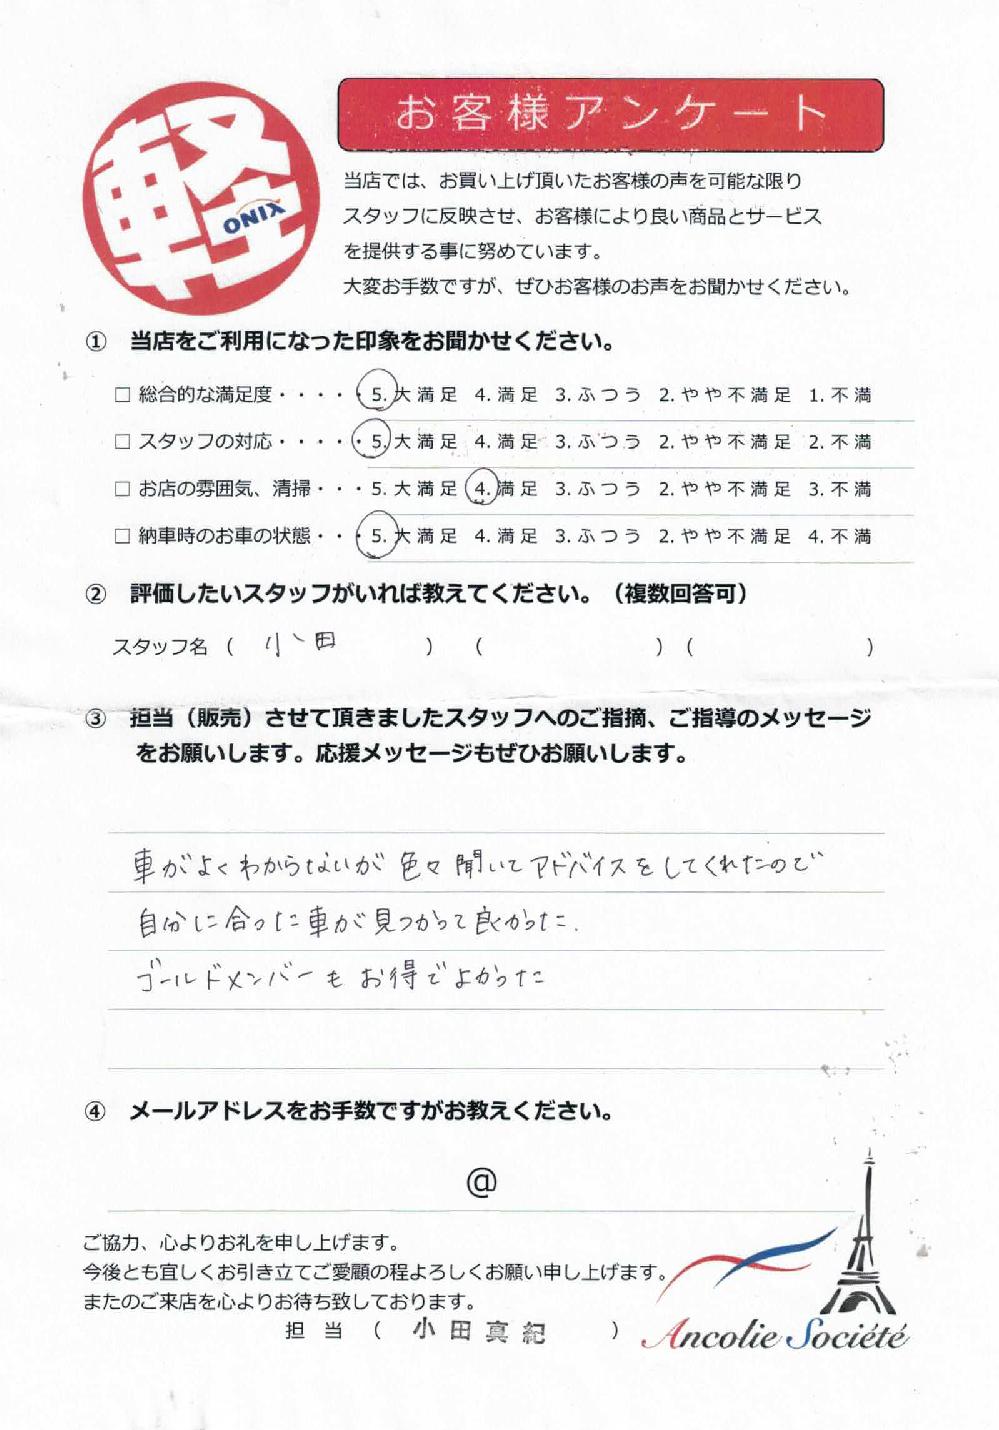 軽
ONIX
お客様アンケート
当店では、お買い上げ頂いたお客様の声を可能な限り
スタッフに反映させ、お客様により良い商品とサービス
を提供する事に努めています。
大変お手数ですが、ぜひお客様のお声をお聞かせください。
① 当店をご利用になった印象をお聞かせください。
□ 総合的な満足度・・・・・5. 大満足 4. 満足 3. ふつう 2. やや不満足 1. 不満
□ スタッフの対応・・・・・5. 大満足 4. 満足 3. ふつう 2. やや不満足 2. 不満
□ お店の雰囲気、清掃・・・5. 大満足 4. 満足 3. ふつう 2. やや不満足 3. 不満
□ 納車時のお車の状態・・・5. 大満足 4. 満足 3. ふつう 2. やや不満足 4. 不満
② 評価したいスタッフがいれば教えてください。（複数回答可）
スタッフ名（ 小田 ）（ ）（ ）
③ 担当（販売）させて頂きましたスタッフへのご指摘、ご指導のメッセージ
をお願いします。応援メッセージもぜひお願いします。
車がよくわからないが 色々 聞いてアドバイスをしてくれたので
自分に合った車が見つかって良かった.
ゴールドメンバーも お得でよかった
④ メールアドレスをお手数ですがお教えください。
@
ご協力、心よりお礼を申し上げます。
今後とも宜しくお引き立てご愛顧の程よろしくお願い申し上げます。
またのご来店を心よりお待ち致しております。
担 当 （ 小田真紀 ）
Ancolie Société